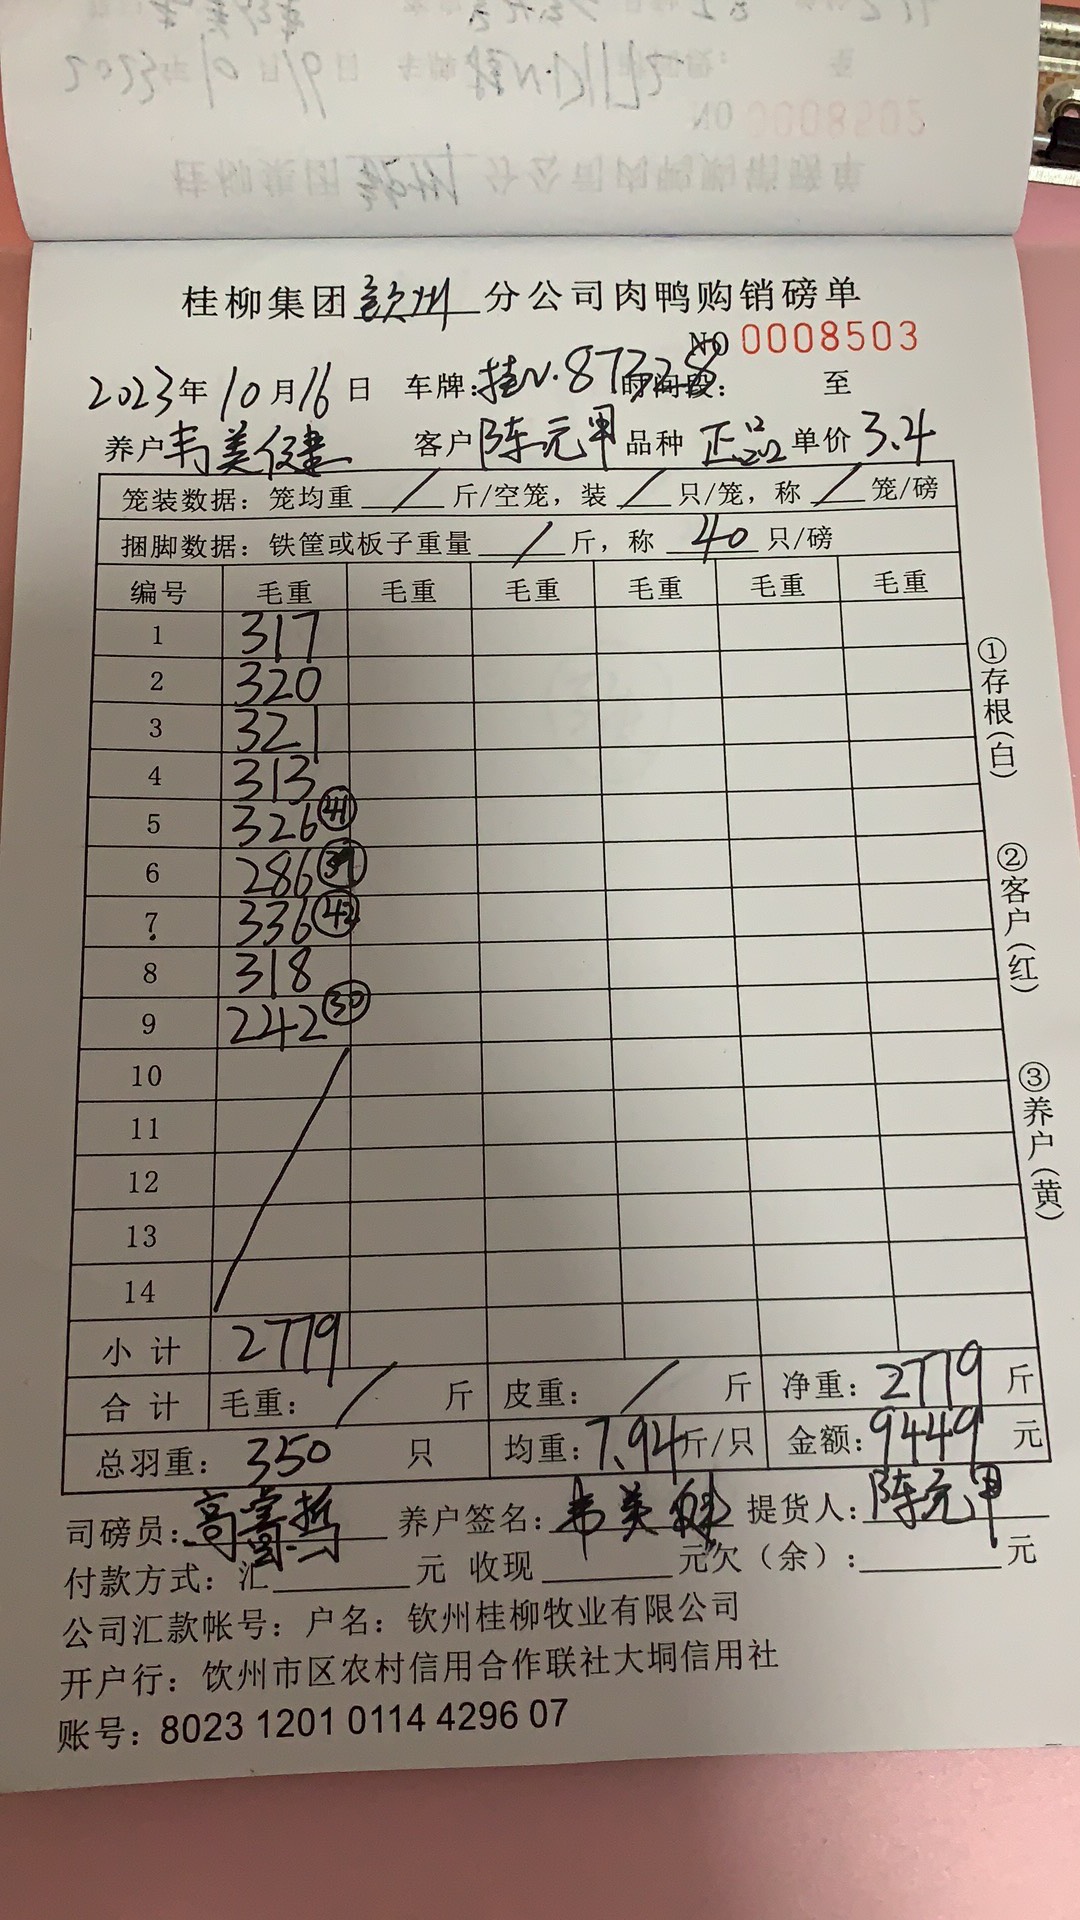 桂柳集团钦州分公司肉鸭购销磅单
NO 0008503
2023年10月16日 车牌:桂N·87328 时间段: 至
养户韦美健 客户陈元甲 品种 正品 单价3.4
笼装数据：笼均重 / 斤/空笼，装 / 只/笼，称 / 笼/磅
捆脚数据：铁筐或板子重量 / 斤，称 40 只/磅
编号 毛重 毛重 毛重 毛重 毛重 毛重
1 317
2 320
3 321
4 313
5 326 ㊶
6 286 ㊴
7 336 ㊷
8 318
9 242 ㉚
10
11
12
13
14
小计 2779
合计 毛重： / 斤 皮重： / 斤 净重：2779 斤
总羽重： 350 只 均重：7.94斤/只 金额：9449 元
司磅员： 养户签名：韦美健 提货人：陈元甲
付款方式：汇 元 收现 元 欠（余）： 元
公司汇款帐号：户名：钦州桂柳牧业有限公司
开户行：饮州市区农村信用合作联社大垌信用社
账号：8023 1201 0114 4296 07
①存根(白)
②客户(红)
③养户(黄)